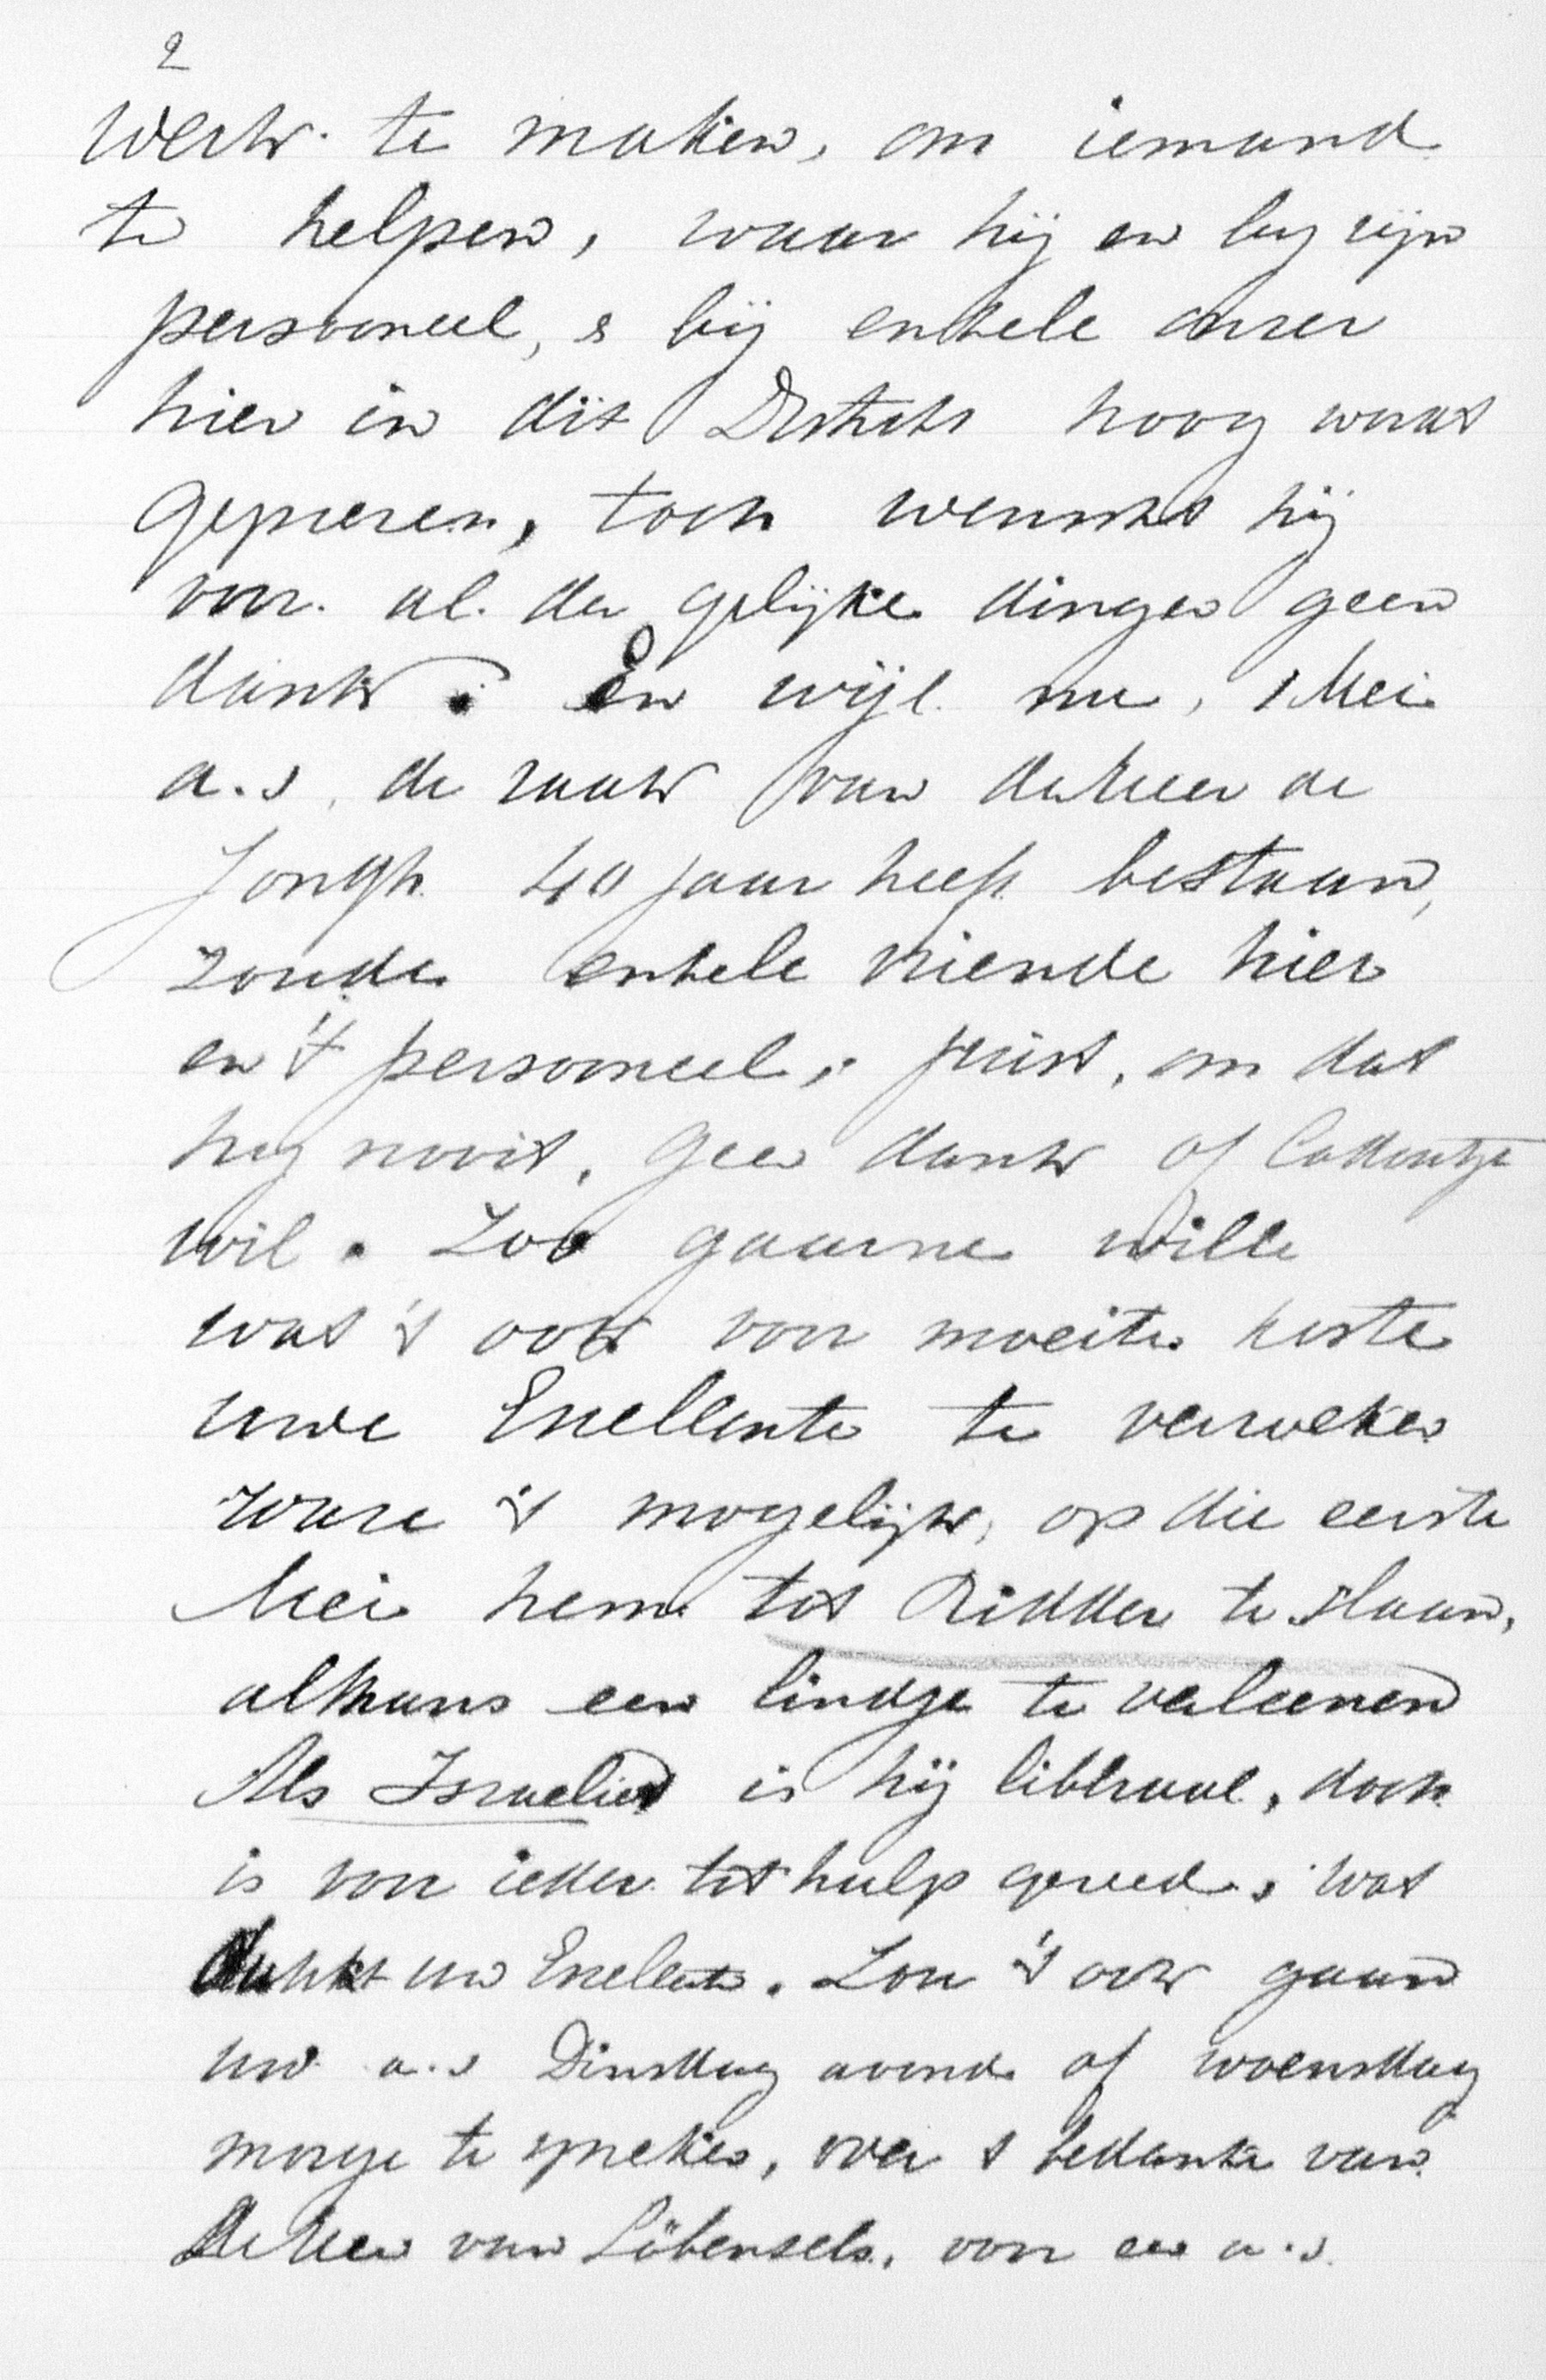 2
werk te maken, om iemand
te helpen, waar hij en by zijn
personeel, & bij enkele onzer
hier in dit District hoog word
geprezen, toch wenscht hij
voor al der gelijke dingen geen
dank. En wijl nu, 1 Mei
a.s, de zaak van de Heer de
Jongh 40 jaar heeft bestaan,
zoude enkele vriende hier
en 't personeel, juist, om dat
hij nooit, geen dank of
wil. Zoo gaarne wille
wat 't ook voor moeite koste
uwe Excellentie te verzoeken
ware 't mogelijk, op die eerste
Mei hem tot Ridder te slaan,
althans een lindje te verleenen
Als Israeliet is hij liberaal, doch
is voor ieder tot hulp gereed, wat
dunkt uw Excellentie. Zou 't ook gaan
uw a.s Dinsdag avond of woensdag
morge te spreken, over t bedanke van
de Heer van Löbensels, voor en a.s.